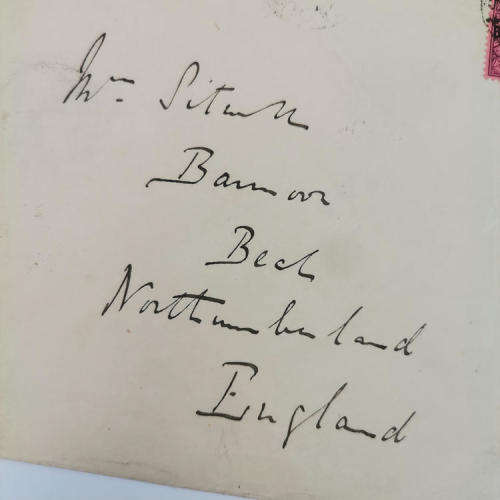 Mrs Sitwell
Barmoor
Beal
Northumberland
England